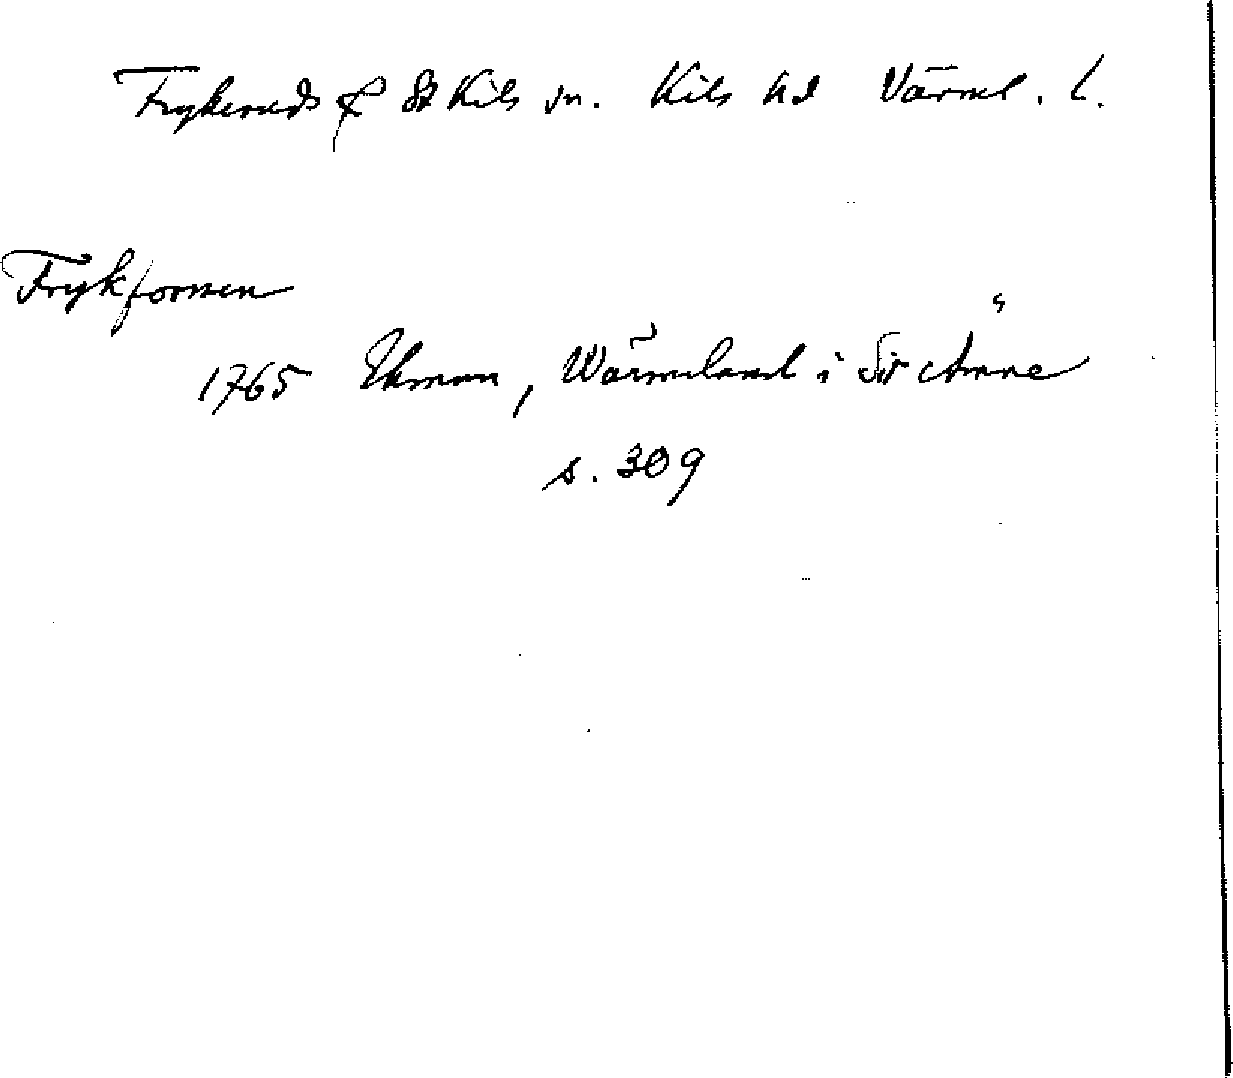 Frykeruds & St Kils sn. Kils hd Värml. l.
Frykforsen
1765 Ekman, Wärmeland i Sitt Ämne
s. 309